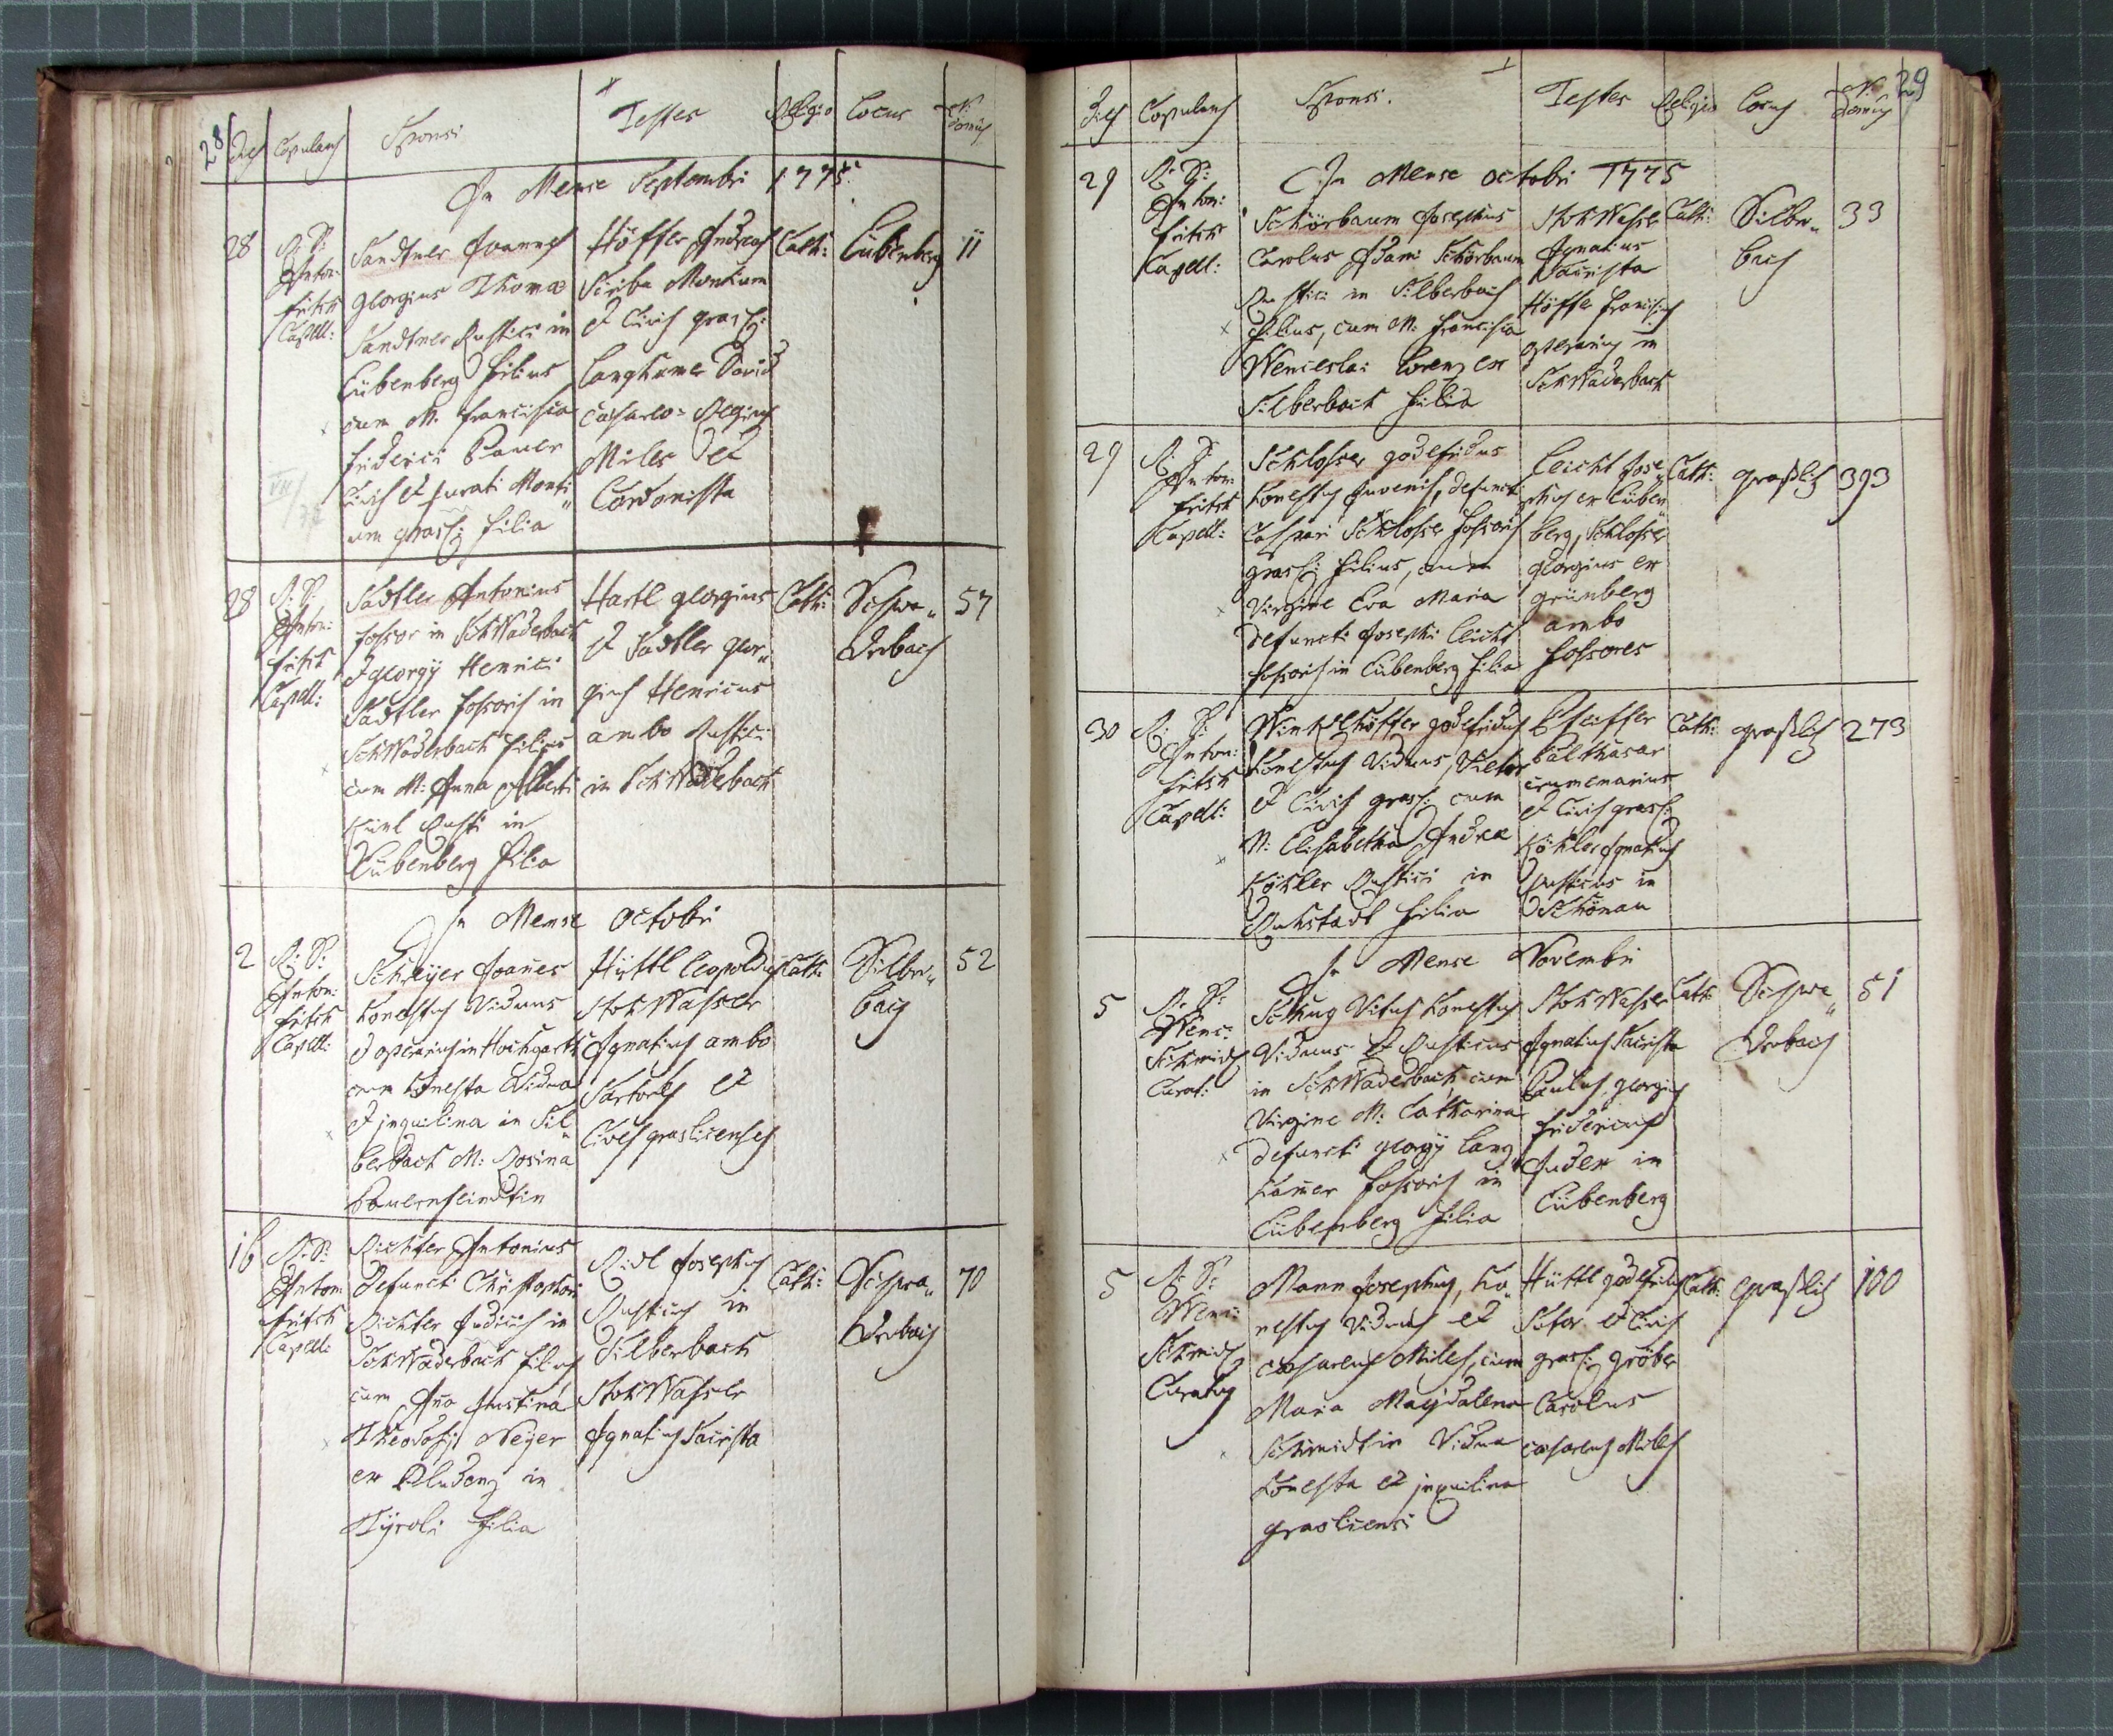 28 Dies Copulans Sponsi Testes Religio Locus No domus
In Mense Septembri 1775.
28 R: D: Anton: Fritsch Capell:
Sandtner Joannes
Georgius Thomæ
Sandtner Rustici in
Eübenberg Filius
cum M. Francisca
Friderici Bauer
Civis et Jurati Monti„
um grasl: Filia
Höffer Andreas
Scriba Montium
et Civis grasl:
Langhamer David
Cæsareo-Regius
Miles et
Cordonista
Cath: Eübenberg 11
28 R: D: Anton: Fritsch Capell:
Sadtler Antonius
Fossor in Schwaderbach
Georgÿ Henrici
Sadtler Fossoris in
Schwaderbach Filius
cum M: Anna Alberti
Kürl Rusti: in
Eübenberg Filia
Hartl Georgius
et Sadtler Geor„
gius Henricus
ambo Rustici
in Schwaderbach
Cath: Schwa„
derbach
57
In Mense Octobri
2 R: D: Anton: Fritsch Capell:
Schreÿer Joannes
honestus Viduus
Operarius in Hochgarth
cum honesta Vidua
et inquilina in Sil„
berbach M: Rosina
Bauernfeindtin
Hüttl Leopoldus
Stohwasser
Ignatius ambo
Sartores et
Cives graslicenses
Cath: Silber„
bach
52
16 R: D: Anton Fritsch Capell:
Richter Antonius
Defuncti Christophori
Richter Judicis in
Schwaderbach Filius
cum Aña Justina
Theodosÿ Neÿer
ex Bludenz in
Tÿroli Filia
Ridl Josephus
Rusticus in
Silberbach
Stohwasser
Ignatius Sacrista
Cath: Schwa„
derbach
70
Dies Copulans Sponsi. Testes Religio Locus No domus 29
In Mense Octobri 1775
29 R: D: Anton: Fritsch Capell:
Schörbaum Josephus
Carolus Adami Schörbaum
Rustici in Silberbach
Filius, cum M: Francisca
Wenceslai Lorenz ex
Silberbach Filia
Stohwasser
Ignatius
Sacrista
Höffer Franciscus
Operarius in
Schwaderbach
Cath: Silber„
bach
33
29 R: D: Anton: Fritsch Capell:
Schlosser Godefridus
honestus Juvenis, defuncti
Caspari Schlosser Fossoris
grasl: Filius, cum
Virgine Eva Maria
defuncti Josephi Leicht
Fossoris in Eübenberg Filia
Leicht Jose„
phus ex Eüben„
berg, Schlosser
Georgius ex
Grünberg
ambo
Fossores
Cath: Graslitz 393
30 R: D: Anton: Fritsch Capell:
Winkelhöffer Godefridus
honestus Viduus, Vietor
et Civis grasl: cum
M: Elisabetha Andreæ
Köhler Rustici in
Ruhstadt Filia
Pfeiffer
Balthasar
crumenarius
et Civis grasl:
Köhler Ignatius
Rusticus in
Schönau
Cath: Graslitz 273
In Mense Novembri
5 R: D: Wenc: Schmidt Curat:
Schug Vitus honestus
Viduus et Rusticus
in Schwaderbach, cum
Virgine M: Catharina
defuncti Georgÿ Lang„
hamer Fossoris in
Eübenberg Filia
Stohwasser
Ignatius Sacrista
Paulus Georgius
Fridericus
Judex in
Eübenberg
Cath: Schwa„
derbach
51
5 R: D: Wenc: Schmidt Curatus
Mann Josephus, ho„
nestus Viduus et
Cæsareus Miles, cum
Maria Magdalena
Schmidtin Vidua
honesta et inquilina
graslicensi
Hüttl Godefridus
Sutor et Civis
grasl: Gröber
Carolus
Cæsareus Miles
Cath: Graslitz 100